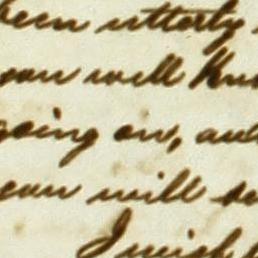 been utterly
you well Kn
going on, and
you will se
I wish